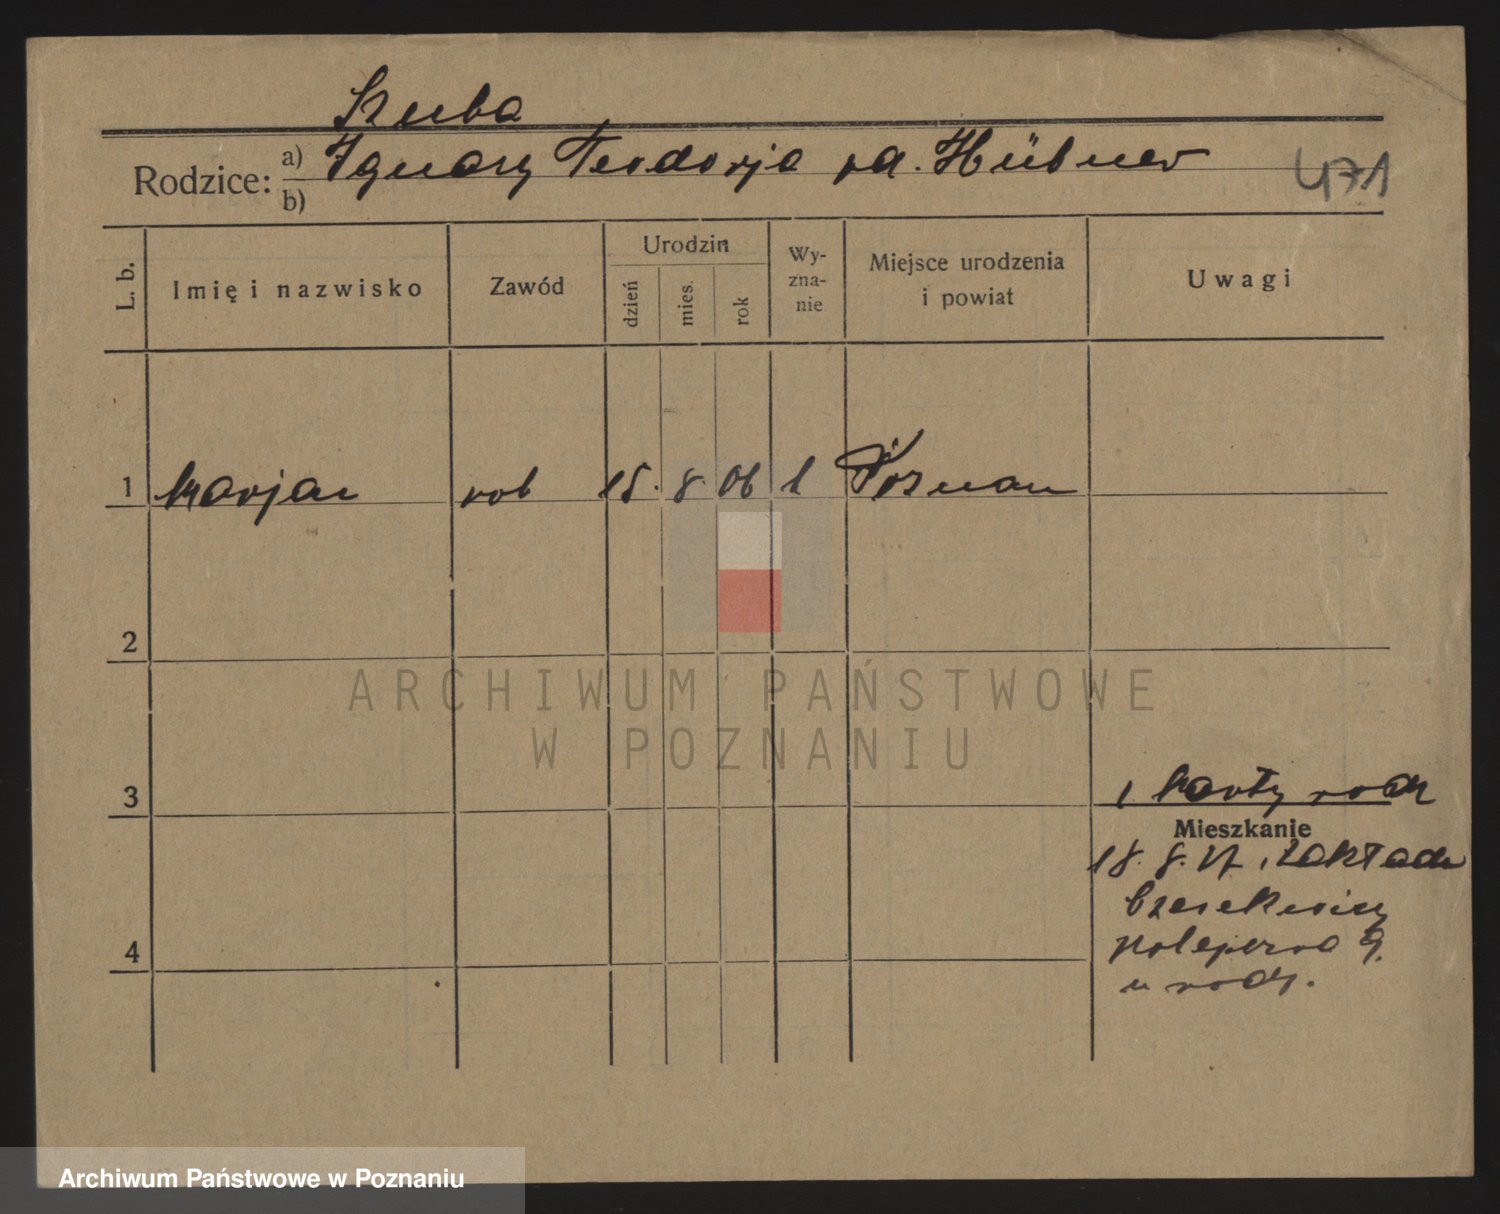 Szuba
Rodzice: a) Ignacy Teodorja rd. Hübner
b)
471
L. b.
Imię i nazwisko
Zawód
Urodzin
dzień
mies.
rok
Wy-
zna-
nie
Miejsce urodzenia
i powiat
Uwagi
1 Marjan rob 15. 8. 06 k Poznan
2
ARCHIWUM PAŃSTWOWE
W POZNANIU
3
z karty rodz
Mieszkanie
18. 8. z Zakładu
4
u rodz.
Archiwum Państwowe w Poznaniu